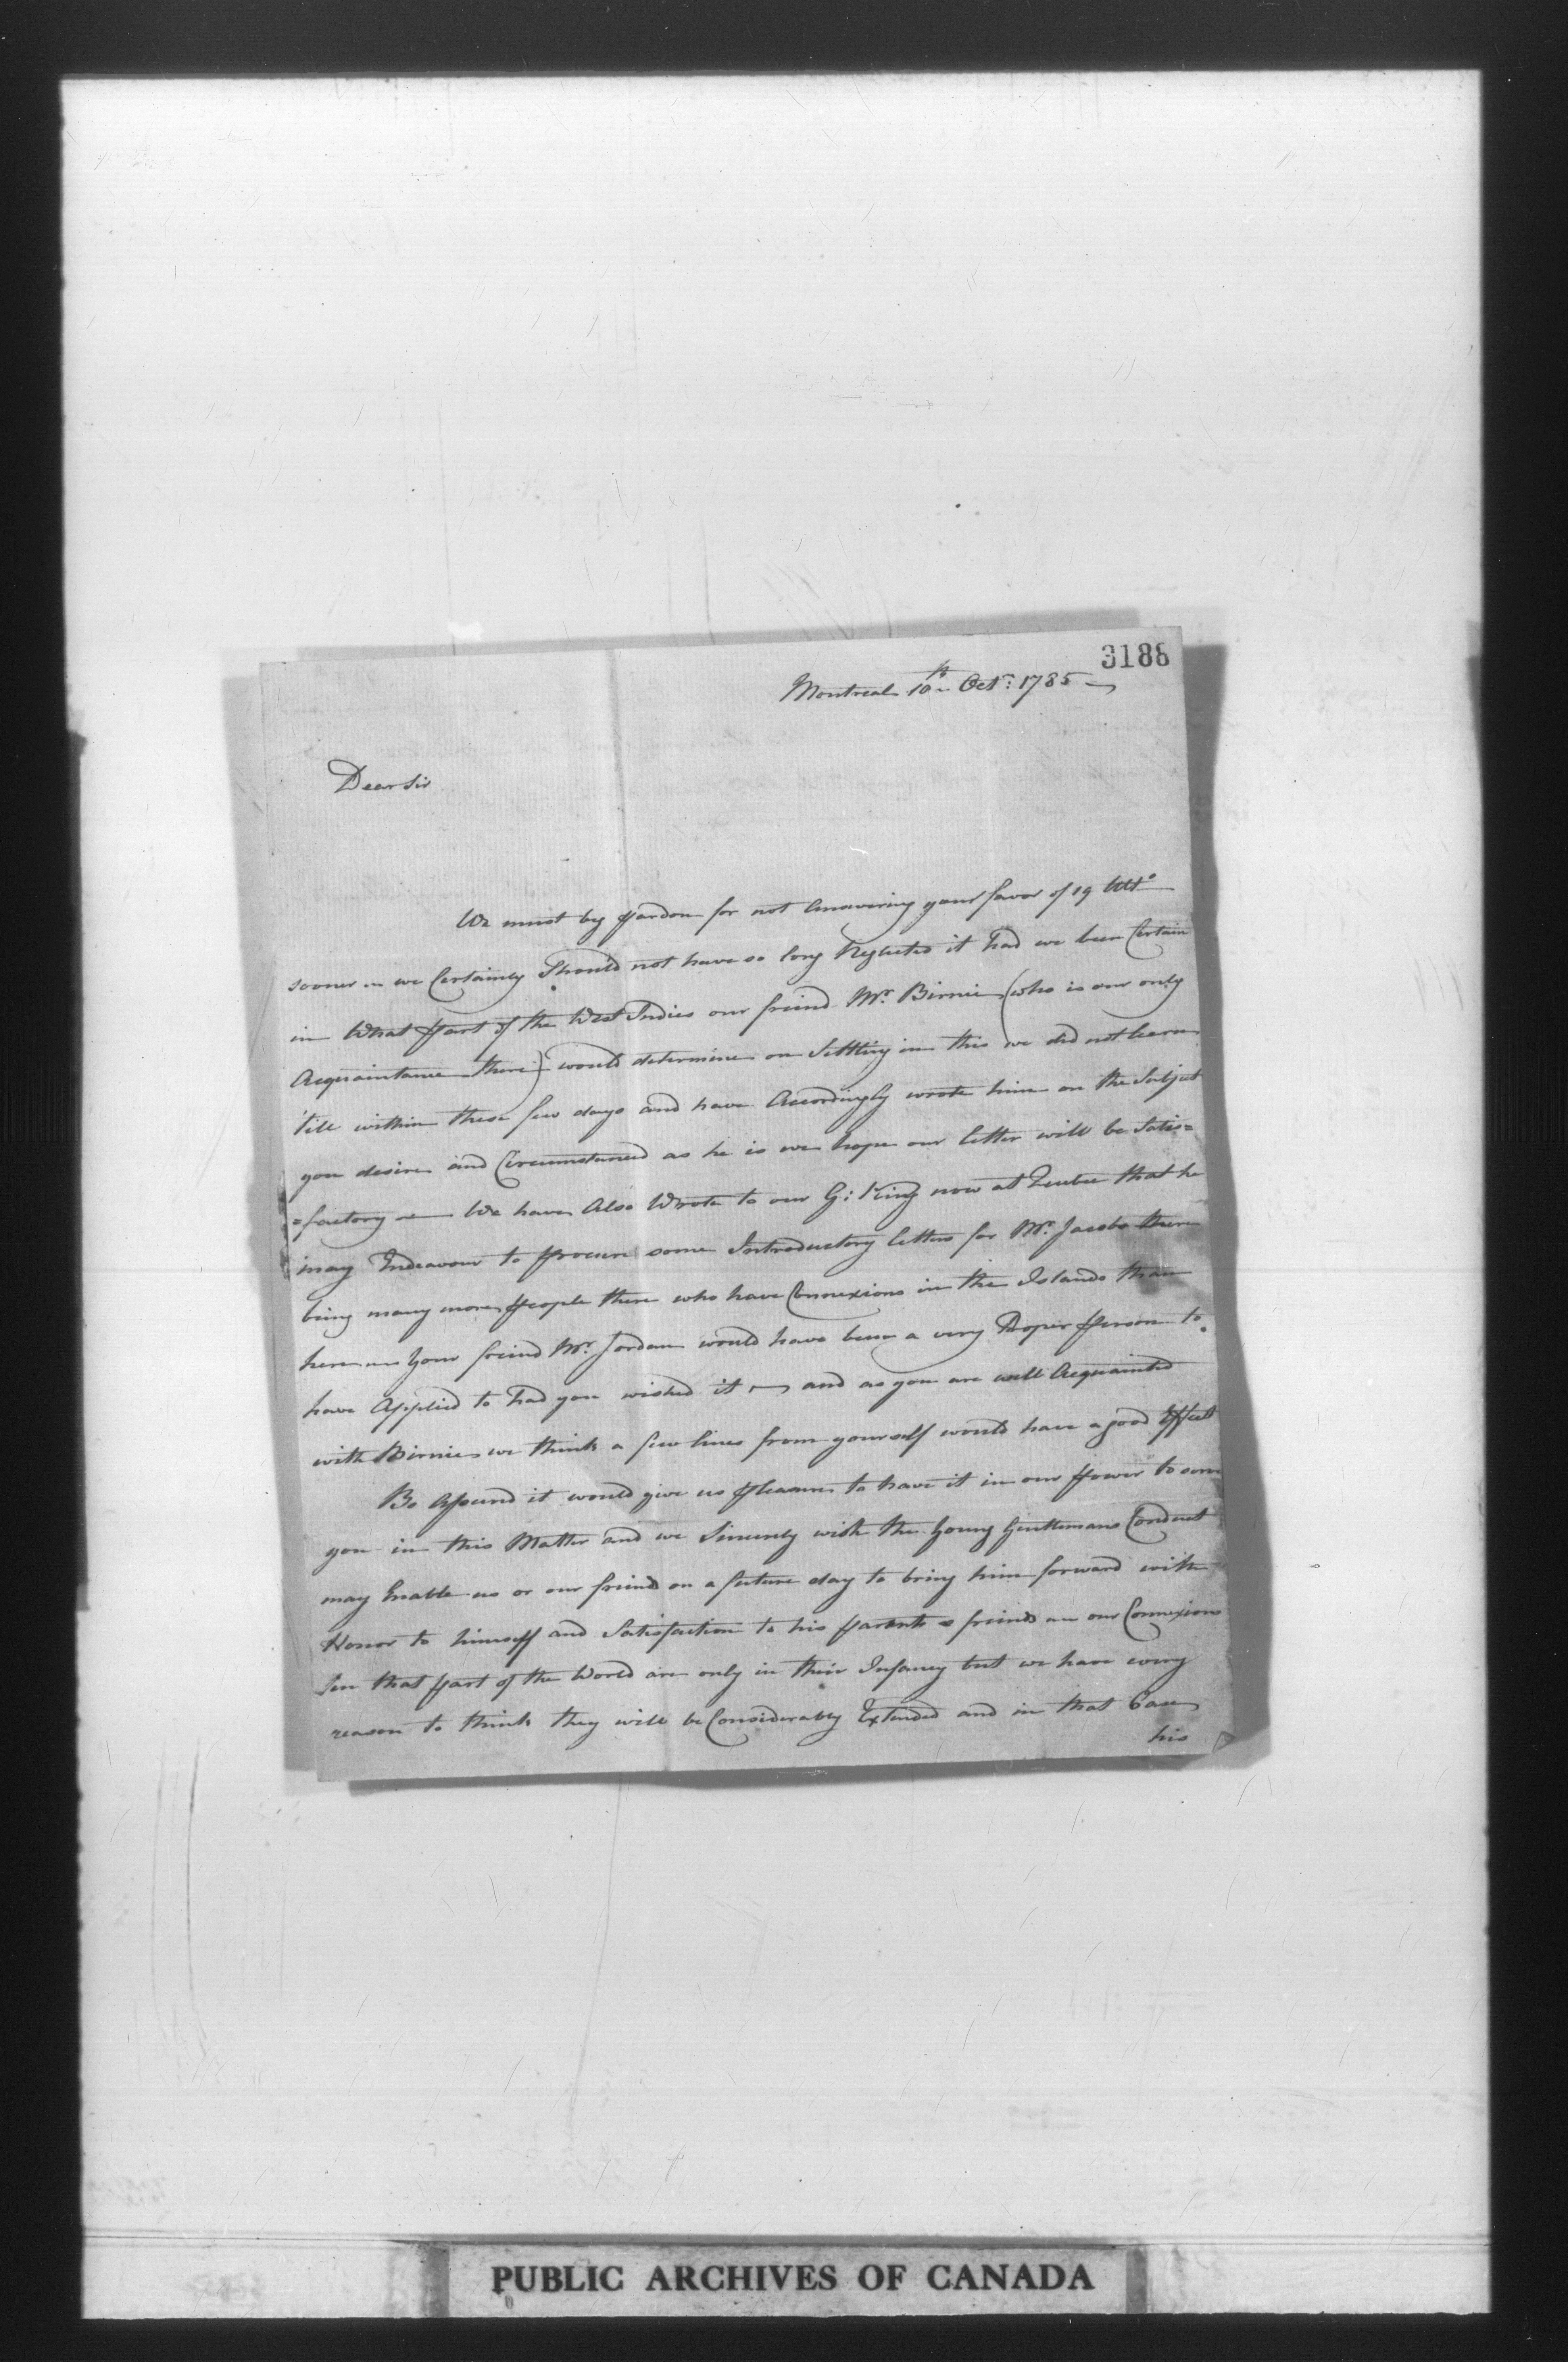 3188
Montreal 10th Octr: 1785
Dear Sir
We must beg pardon for not Answering your favor of 19 Ulto
sooner we Certainly Should not have so long Neglected it had we been Certain
in What part of the West Indies our friend Mr. Birnie (who is our only
Acquaintance there) would determine on Settling in this we did not learn
'till within these few days and have Accordingly wrote him on the Subject
you desire and Circumstanced as he is we hope our letter will be Satis=
=factory We have Also Wrote to our G: King now at Quebec that he
may Endeavour to procure some Introductory letters for Mr. Jacobs there
being many more people there who have Connexions in the Islands than
here Your friend Mr. Jordan would have been a very Proper person to
have Applied to had you wished it and as you are well Acquainted
with Birnie we think a few lines from yourself would have a good Effect
Be Assured it would give us pleasure to have it in our power to serve
you in this Matter and we Sincerely wish the Young Gentlemans Conduct
may Enable us or our friend on a future day to bring him forward with
Honor to himself and Satisfaction to his parents & friends our Connexions
in that part of the World are only in their Infancy but we have every
reason to think they will be Considerably Extended and in that Case
his
PUBLIC ARCHIVES OF CANADA